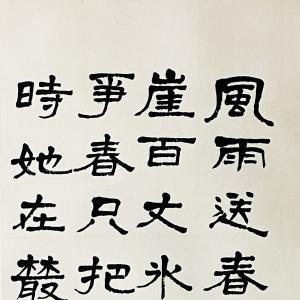 風雨送春
崖百丈冰
爭春只把
時她在叢